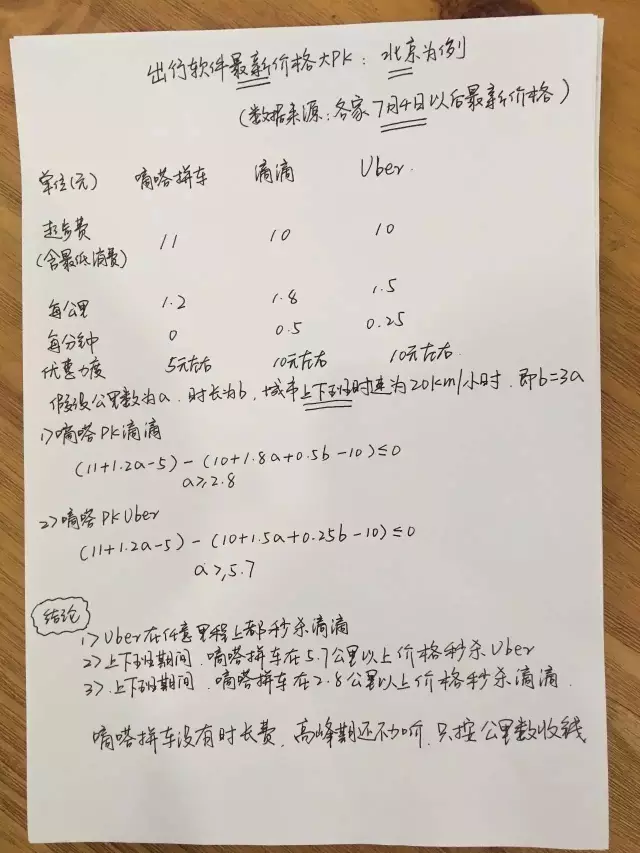 出行软件最新价格大PK：北京为例
(数据来源：各家7月4日以后最新价格)
单位(元) 嘀嗒拼车 滴滴 Uber.
起步费
(含最低消费) 11 10 10
每公里 1.2 1.8 1.5
每分钟 0 0.5 0.25
优惠力度 5元左右 10元左右 10元左右.
假设公里数为a，时长为b，城市上下班时速为20km/小时，即b=3a
1>嘀嗒PK滴滴
(11+1.2a-5)-(10+1.8a+0.5b-10)≤0
a≥2.8
2>嘀嗒PKUber
(11+1.2a-5)-(10+1.5a+0.25b-10)≤0
a≥5.7
结论
1>Uber在任意里程上都秒杀滴滴
2>上下班期间，嘀嗒拼车在5.7公里以上价格秒杀Uber
3>上下班期间，嘀嗒拼车在2.8公里以上价格秒杀滴滴.
嘀嗒拼车没有时长费，高峰期还不加价，只按公里数收钱